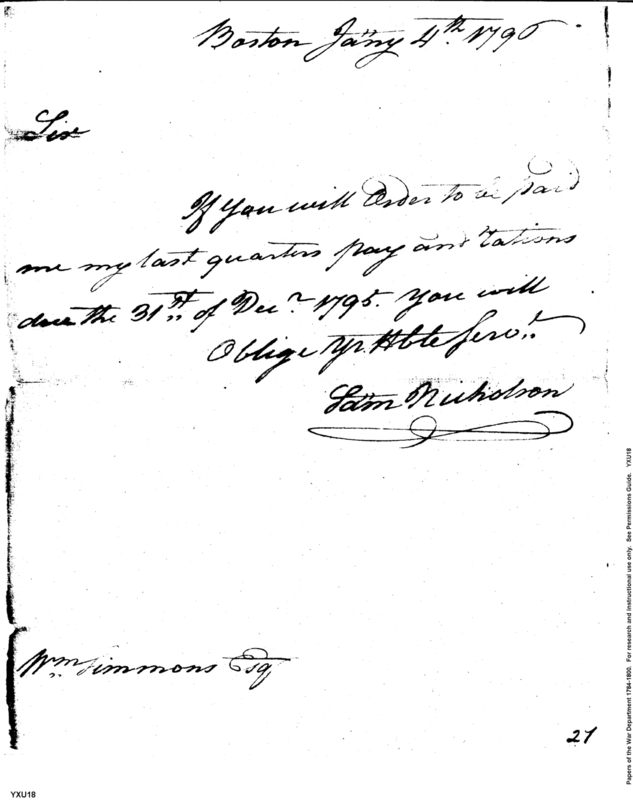 Boston Jany 4th. 1796
Sir
If You will Order to be paid
me my last quarters pay and rations
due the 31st. of Decr. 1795. You will
Oblige Yr Hble Servt.
Sam Nicholson
Wm. Simmons Esq
21
YXU18
Papers of the War Department 1784-1800. For research and instructional use only. See Permissions Guide. YXU18